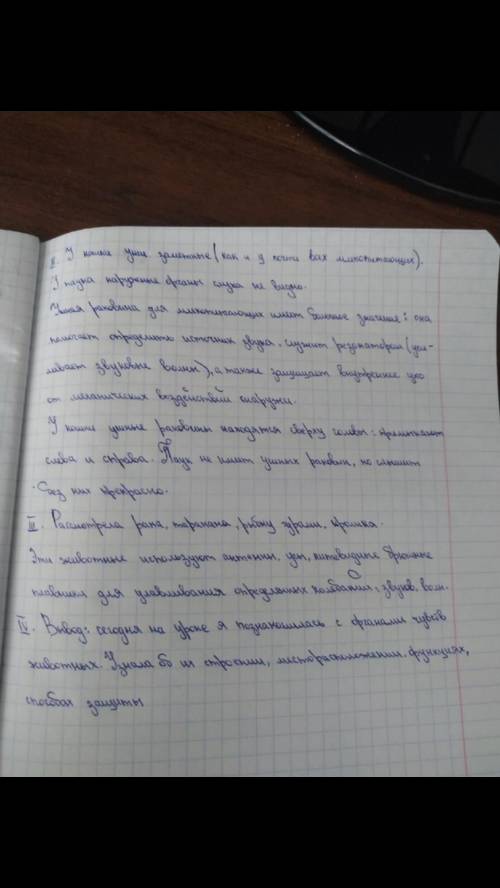 II. У кошки уши заметные (как и у почти всех млекопитающих).
У паука наружные органы слуха не видно.
Ушная раковина для млекопитающих имеет большое значение: она
помогает определить источник звука, служит резонатором (уси-
ливает звуковые волны), а также защищает внутреннее ухо
от механических воздействий снаружи.
У кошки ушные раковины находятся сверху головы: примыкают
слева и справа. Паук не имеет ушных раковин, но слышит
без них прекрасно.
III. Рассмотрела рака, таракана, рыбку гурами, кролика.
Эти животные используют антенны, уши, нитевидные брюшные
плавники для улавливания определенных колебаний, звуков, волн.
IV. Вывод: сегодня на уроке я познакомилась с органами чувств
животных. Узнала об их строении, месторасположении, функциях,
способах защиты